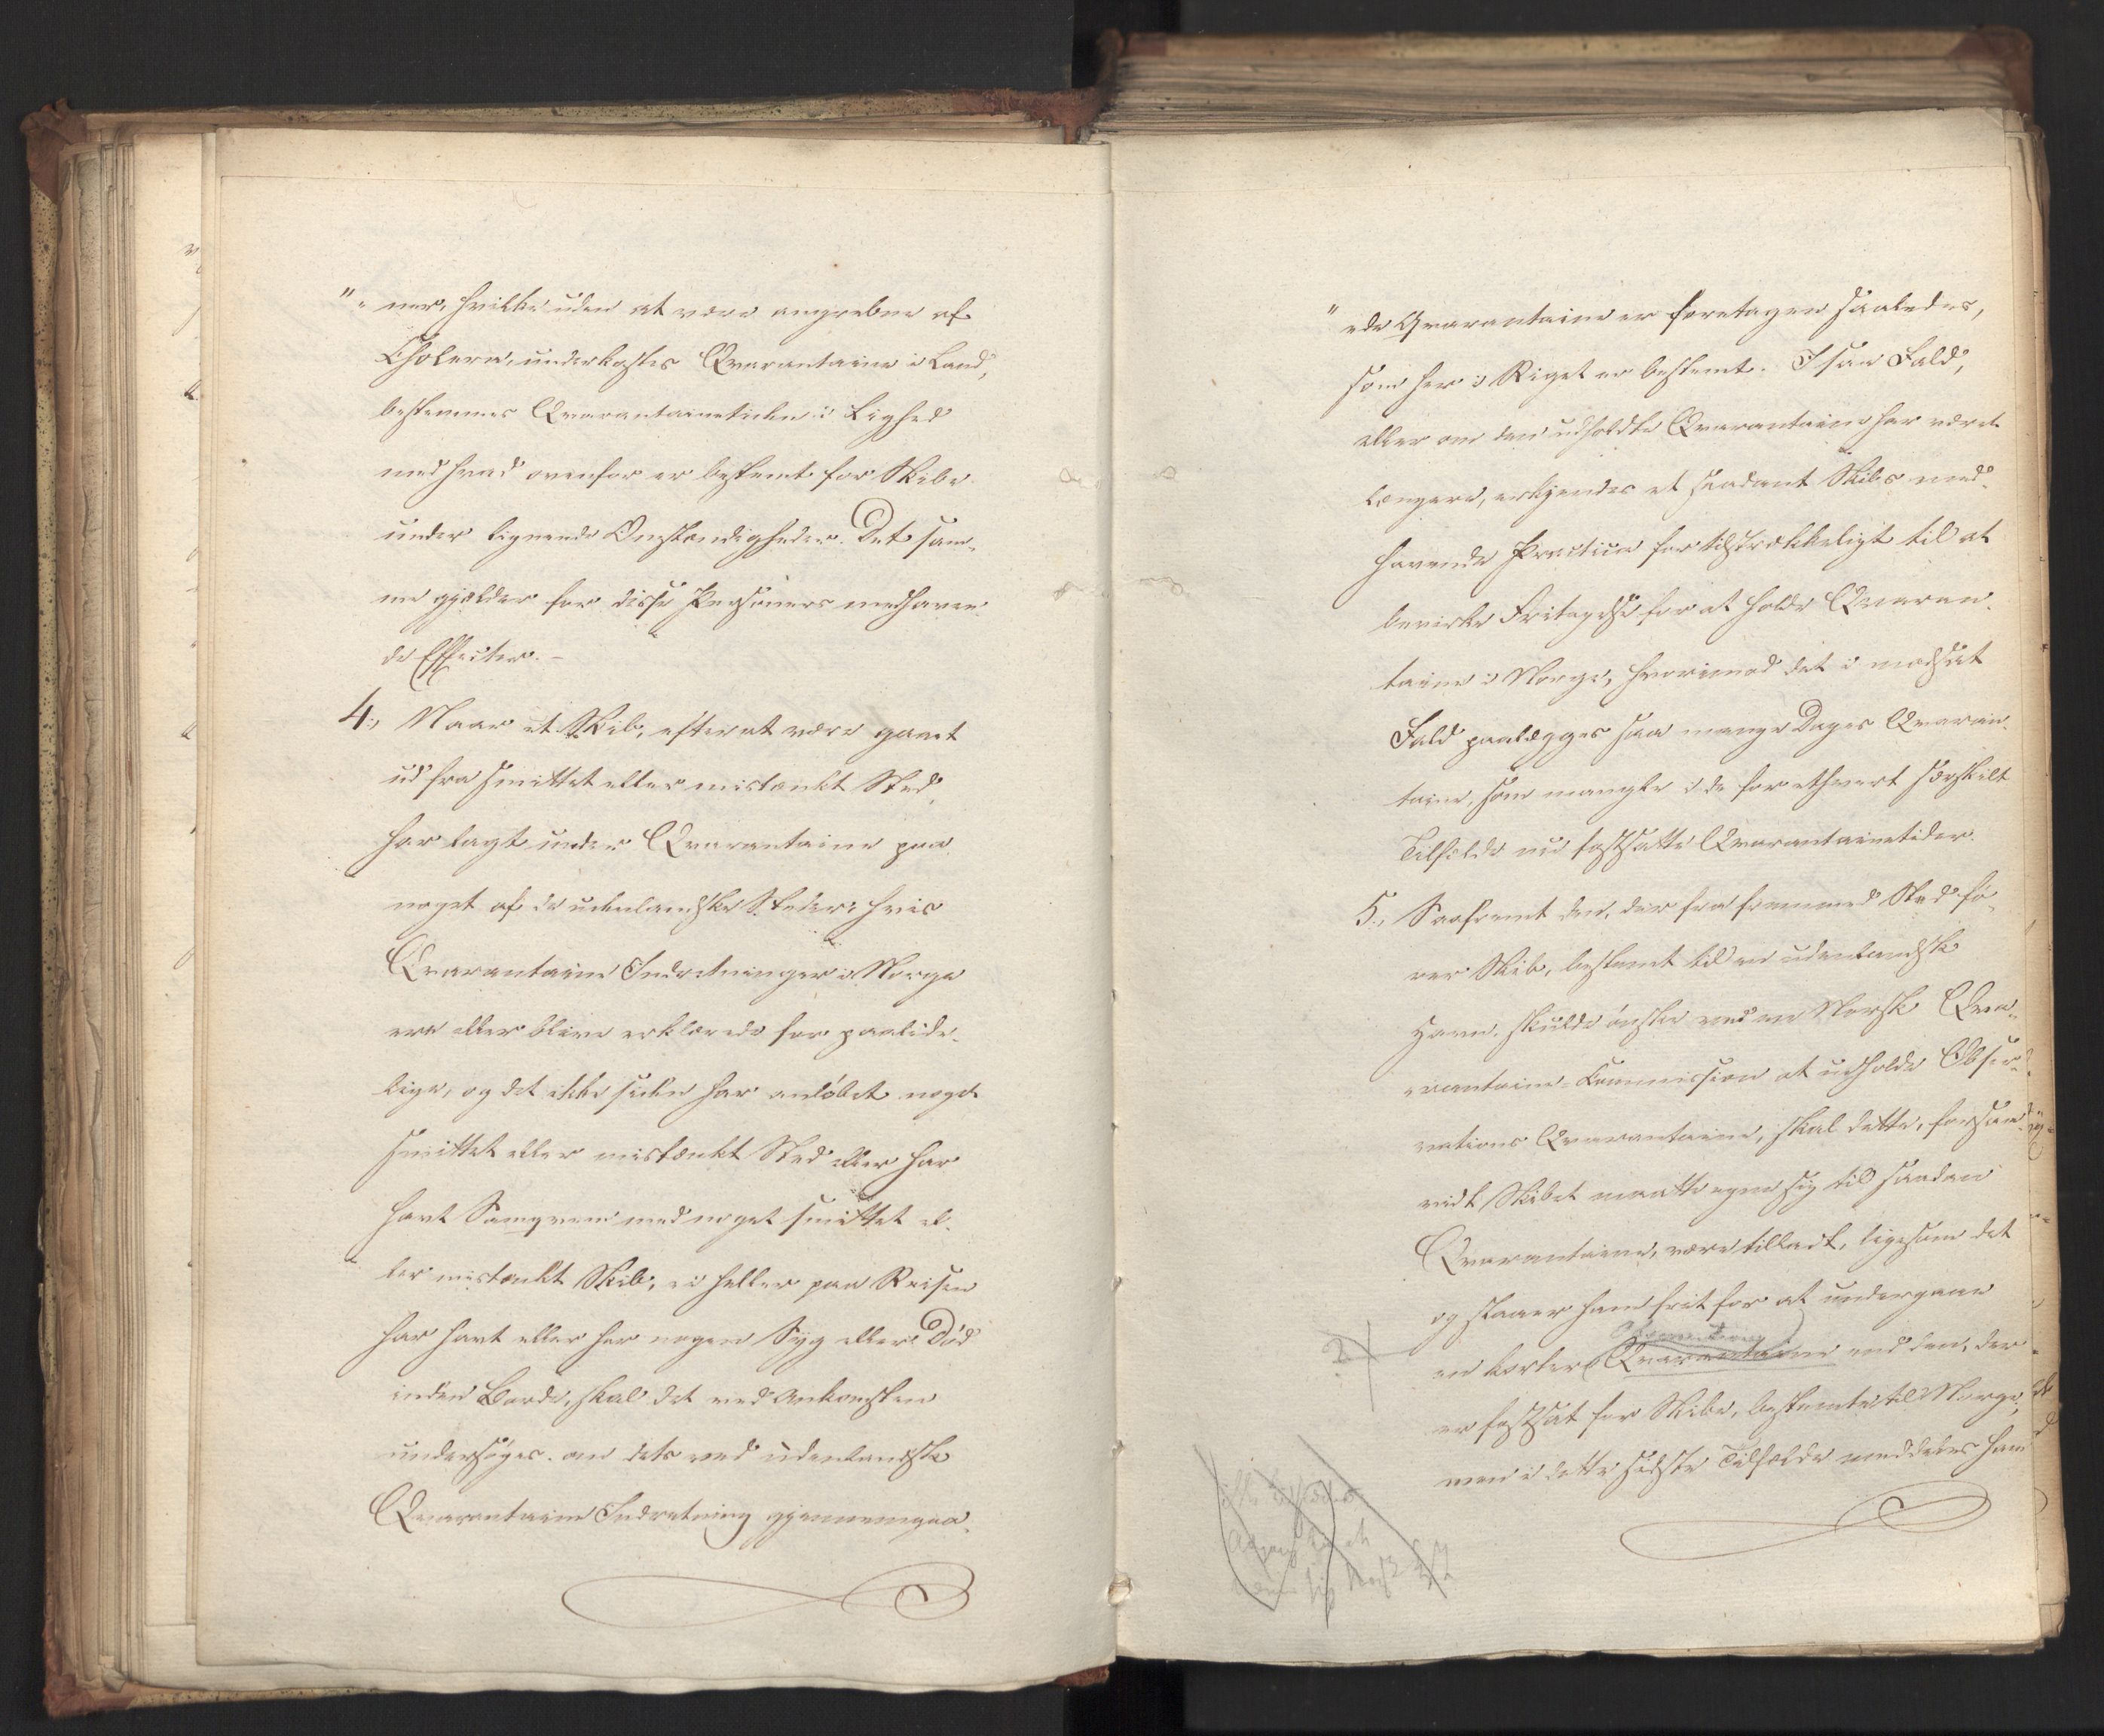 "-ner, hvilke uden at være angrebne af
Cholera, underkastes Qvarantaine i Land,
bestemmes Qvarantainetiden i Lighed
med hvad ovenfor er bestemt for Skibe
under lignende Omstændigheder. Det sam-
me gjælder for disse Personers medhaven-
de Effecter.-
4., Naar et Skib, efter at være gaaet
ud fra smittet eller mistænkt Sted,
har lagt under Qvarantaine paa
noget af de udenlandske Steder, hvis
Qvarantaine Indretninger i Norge
ere eller blive erklærede for paalide-
lige, og det ikke siden har anløbet noget
smittet eller mistænkt Sted eller har
havt Samqvem med noget smittet el-
ler mistænkt Skib, ei heller paa Reisen
har havt eller har nogen Syg eller Død
inden Borde, skal det ved Ankomsten
undersøges, om dets ved udenlandske
Qvarantaine Indretning gjennemgaa-
"ede Qvarantaine er foretagen saaledes,
som her i Riget er bestemt. I saa Fald,
eller om den udholdte Qvarantaine har været
længere, erkjendes et saadant Skibs med-
havende Practica for tilstrækkeligt til at
bevirke Fritagelse for at holde Qvaran-
taine i Norge, hvorimod det i modsat
Fald paalægges saa mange Dages Qvaran-
taine, som mangle i de for ethvert særskilt
Tilfælde nu fastsatte Qvarantainetider.
5., Saafremt den, der fra fremmed Sted fø-
rer Skib, bestemt til en udenlandsk
Havn, skulde ønske ved en Norsk Qva-
rantaine-Commission at udholde Obser-
vations Qvarantaine, skal dette, forsaa-
vidt Skibet maatte egne sig til saadan
Qvarantaine, være tilladt, ligesom det
og staaer ham frit for at undergaae
en kortere Qvarantaine end den, der
er fastsat for Skibe, bestemte til Norge,
men i dette sidste Tilfælde meddeles ham